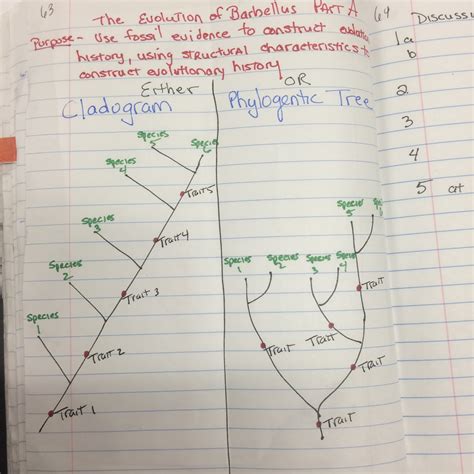 63
The Evolution of Barbellus PART A
Purpose - Use fossil evidence to construct
history, using structural characteristics
construct evolutionary history
Either OR
Cladogram Phylogentic Tree
Species 5
Species
Species 4
Trait 5
Species 3
Trait 4
Species 2
Trait 3
Species 1
Trait 2
Trait 1
Species 5
Species 1
Species 2
Species 3
Species
Trait
Trait
Trait
Trait
Trait
64
Discuss
1a
b
2
3
4
5